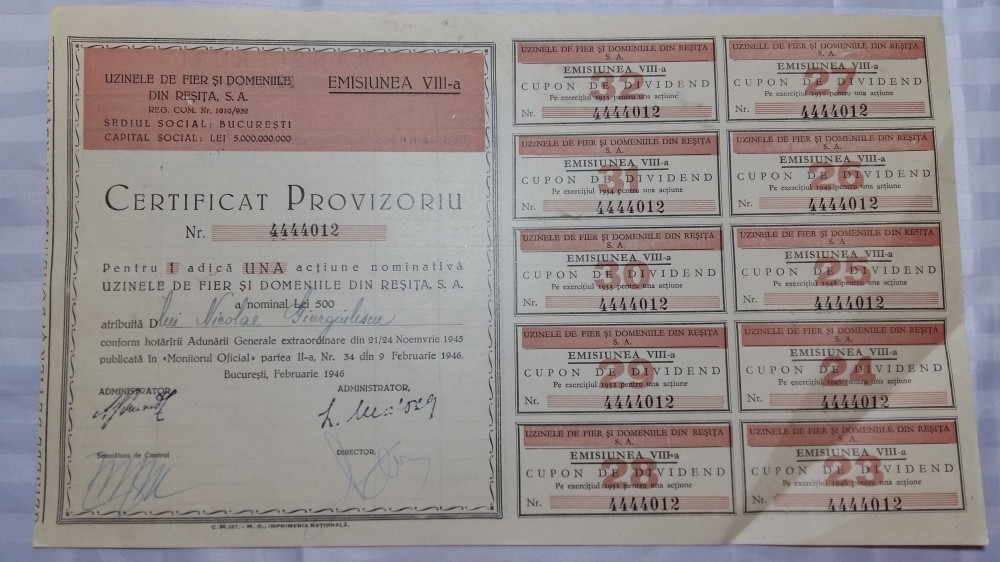 UZINELE DE FIER ȘI DOMENIILE
DIN REȘIȚA, S. A.
REG. COM. Nr. 1910/932
SEDIUL SOCIAL: BUCUREȘTI
CAPITAL SOCIAL: LEI 5.000.000.000
EMISIUNEA VIII-a
CERTIFICAT PROVIZORIU
Nr. 4444012
Pentru 1 adică UNA acțiune nominativă
UZINELE DE FIER ȘI DOMENIILE DIN REȘIȚA, S. A.
a nominal Lei 500
atribuită D lui Nicolae
conform hotărîrii Adunării Generale extraordinare din 21/24 Noemvrie 1945
publicată în «Monitorul Oficial» partea II-a, Nr. 34 din 9 Februarie 1946.
București, Februarie 1946
ADMINISTRATOR
ADMINISTRATOR,
Semnătura de Control
DIRECTOR,
C. M. 327. - M. O., IMPRIMERIA NAȚIONALĂ.
UZINELE DE FIER ȘI DOMENIILE DIN REȘIȚA
S. A.
EMISIUNEA VIII-a
32
CUPON DE DIVIDEND
Pe exercițiul 1955 pentru una acțiune
Nr. 4444012
UZINELE DE FIER ȘI DOMENIILE DIN REȘIȚA
S. A.
EMISIUNEA VIII-a
27
CUPON DE DIVIDEND
Pe exercițiul 1950 pentru una acțiune
Nr. 4444012
UZINELE DE FIER ȘI DOMENIILE DIN REȘIȚA
S. A.
EMISIUNEA VIII-a
31
CUPON DE DIVIDEND
Pe exercițiul 1954 pentru una acțiune
Nr. 4444012
UZINELE DE FIER ȘI DOMENIILE DIN REȘIȚA
S. A.
EMISIUNEA VIII-a
26
CUPON DE DIVIDEND
Pe exercițiul 1949 pentru una acțiune
Nr. 4444012
UZINELE DE FIER ȘI DOMENIILE DIN REȘIȚA
S. A.
EMISIUNEA VIII-a
30
CUPON DE DIVIDEND
Pe exercițiul 1953 pentru una acțiune
Nr. 4444012
UZINELE DE FIER ȘI DOMENIILE DIN REȘIȚA
S. A.
EMISIUNEA VIII-a
25
CUPON DE DIVIDEND
Pe exercițiul 1948 pentru una acțiune
Nr. 4444012
UZINELE DE FIER ȘI DOMENIILE DIN REȘIȚA
S. A.
EMISIUNEA VIII-a
29
CUPON DE DIVIDEND
Pe exercițiul 1952 pentru una acțiune
Nr. 4444012
UZINELE DE FIER ȘI DOMENIILE DIN REȘIȚA
S. A.
EMISIUNEA VIII-a
24
CUPON DE DIVIDEND
Pe exercițiul 1947 pentru una acțiune
Nr. 4444012
UZINELE DE FIER ȘI DOMENIILE DIN REȘIȚA
S. A.
EMISIUNEA VIII-a
28
CUPON DE DIVIDEND
Pe exercițiul 1951 pentru una acțiune
Nr. 4444012
UZINELE DE FIER ȘI DOMENIILE DIN REȘIȚA
S. A.
EMISIUNEA VIII-a
23
CUPON DE DIVIDEND
Pe exercițiul 1946 pentru una acțiune
Nr. 4444012